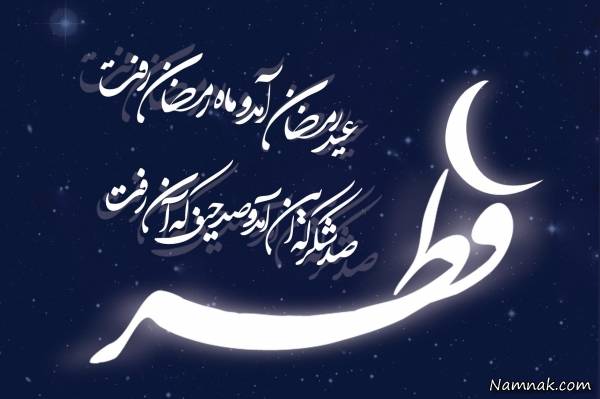 عید رمضان آمد و ماه رمضان رفت
صد شکر که این آمد و صد حیف که آن رفت
فطر
Namnak.com